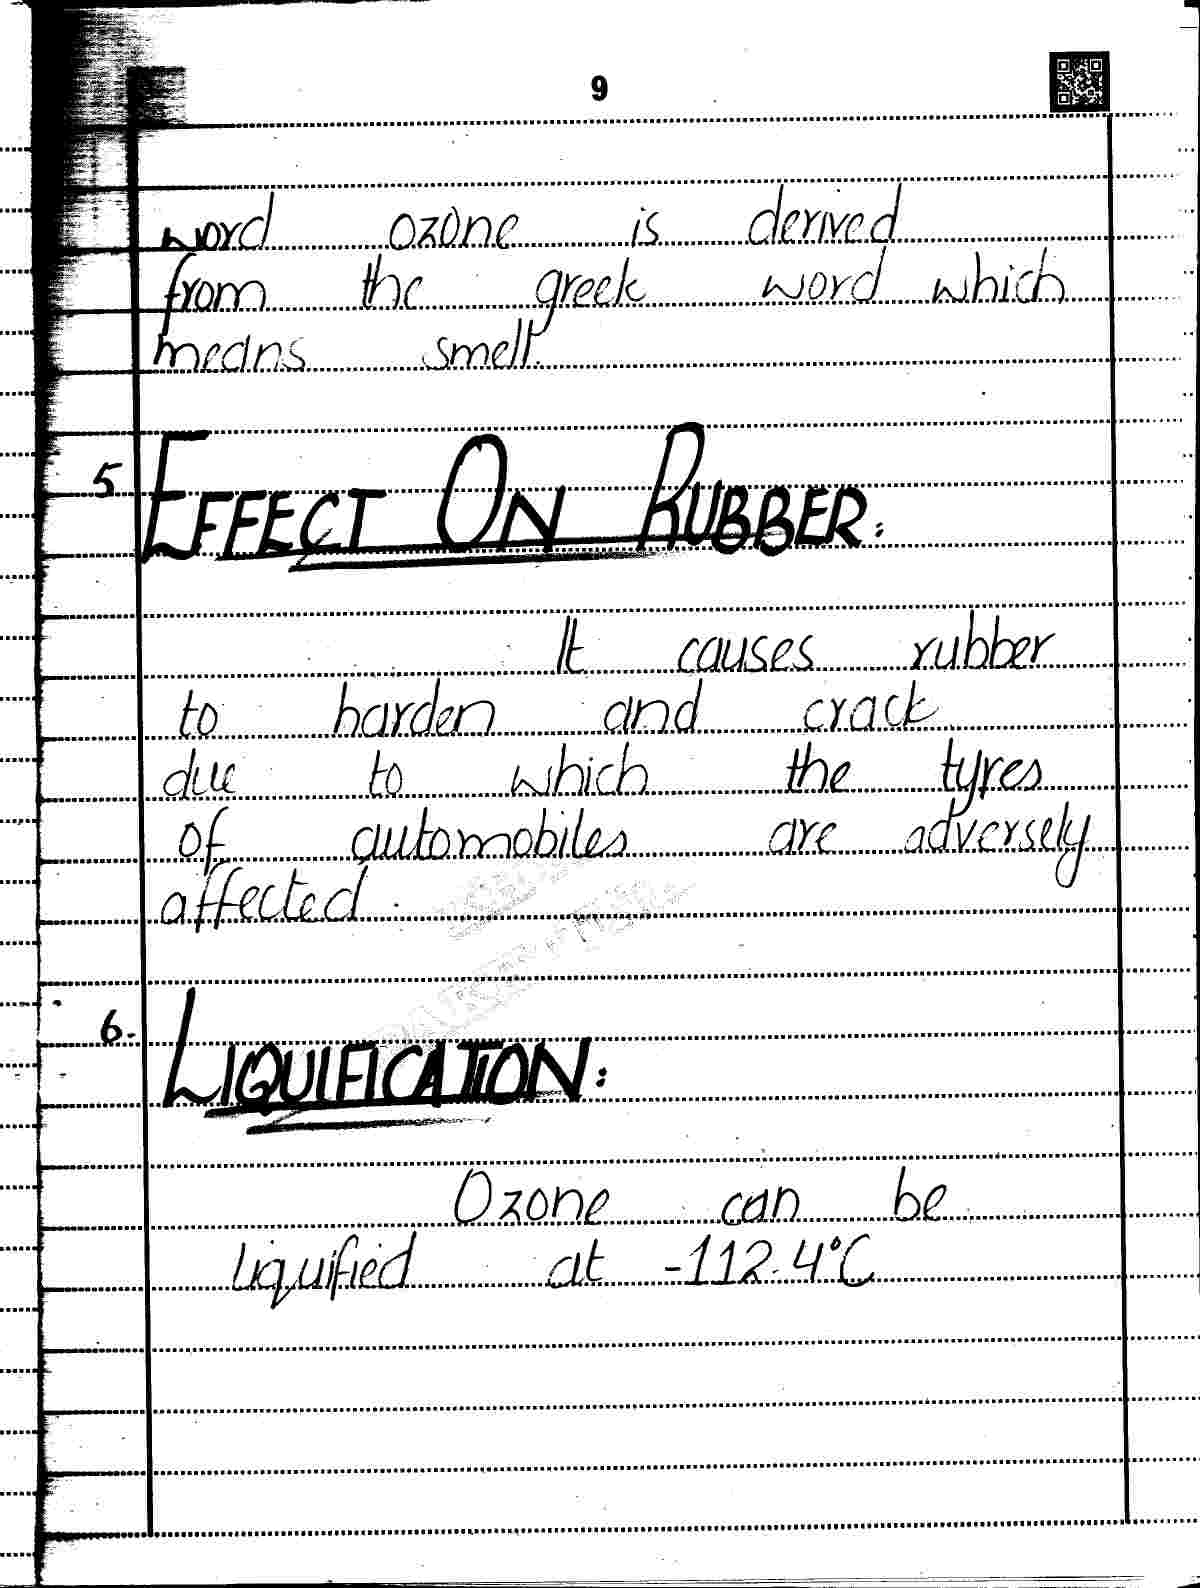 9
word ozone is derived
from the greek word which
means smell.
5 EFFECT ON RUBBER:
It causes rubber
to harden and crack
due to which the tyres
of automobiles are adversely
affected.
6. LIQUIFICATION:
Ozone can be
liquified at -112.4°C